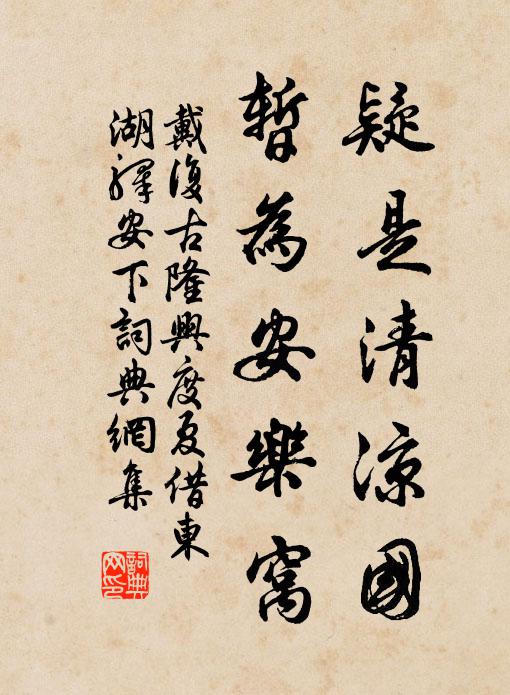 疑是清涼國
暫為安樂窩
戴復古隆興度夏借東
湖驛安下詞典網集
詞典
网印